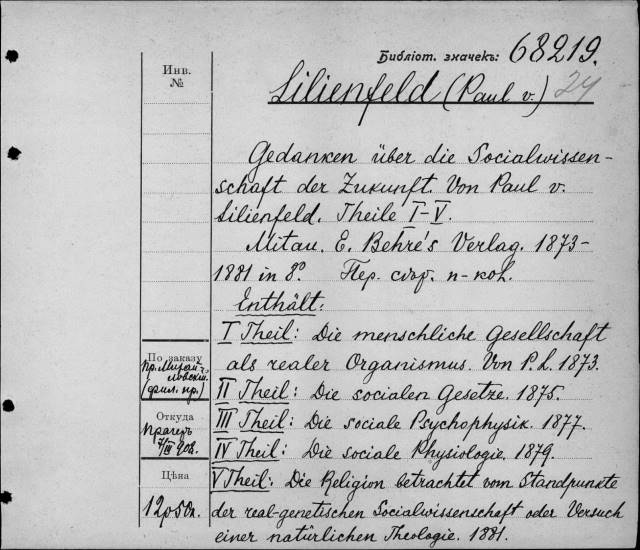 Библіот. значекъ: 68219.
24
Инв.
№
Lilienfeld (Paul v.)
Gedanken über die Socialwissen-
schaft der Zukunft. Von Paul v.
Lilienfeld. Theile I-V.
Mitau. E. Behre's Verlag. 1873-
1881 in 8°.
Enthält:
I Theil: Die menschliche Gesellschaft
als realer Organismus. Von P. L. 1873.
II Theil: Die socialen Gesetze. 1875.
III Theil: Die sociale Psychophysik. 1877.
IV Theil: Die sociale Physiologie. 1879.
V Theil: Die Religion betrachtet vom Standpunkte
der real-genetischen Socialwissenschaft oder Versuch
einer natürlichen Theologie. 1881.
По заказу
Откуда
Цѣна
12р50к.